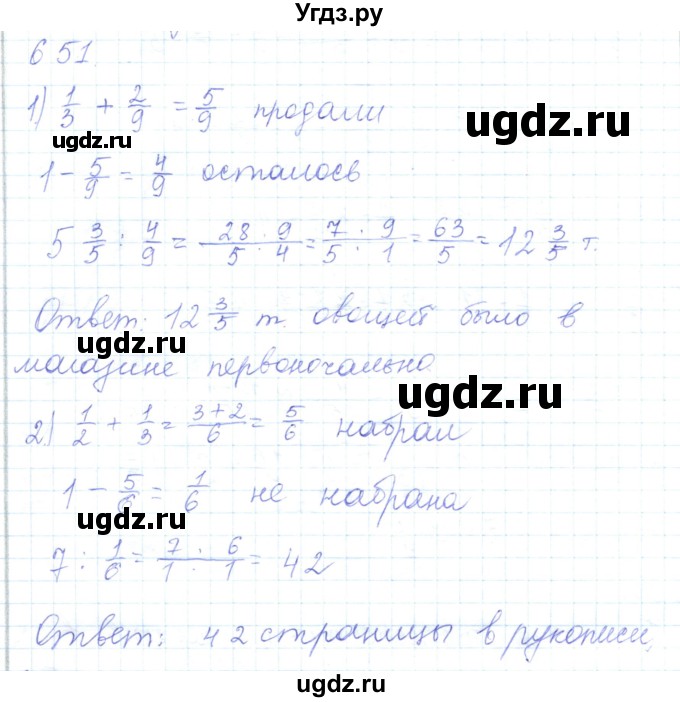 Угдз.ру
651.
1) 1/3 + 2/9 = 5/9 продали
ugdz.ru
ugdz.ru
1 - 5/9 = 4/9 осталось
5 3/5 : 4/9 = 28 · 9 / 5 · 4 = 7 · 9 / 5 · 1 = 63/5 = 12 3/5 т.
Ответ: 12 3/5 т. овощей было в
ugdz.ru
магазине первоночально.
ugdz.ru
2) 1/2 + 1/3 = 3+2/6 = 5/6 набрал
1 - 5/6 = 1/6 не набрана
ugdz.ru
7 : 1/6 = 7 · 6 / 1 · 1 = 42
Ответ: 42 страницы в рукописи.
ugdz.ru
ugdz.ru